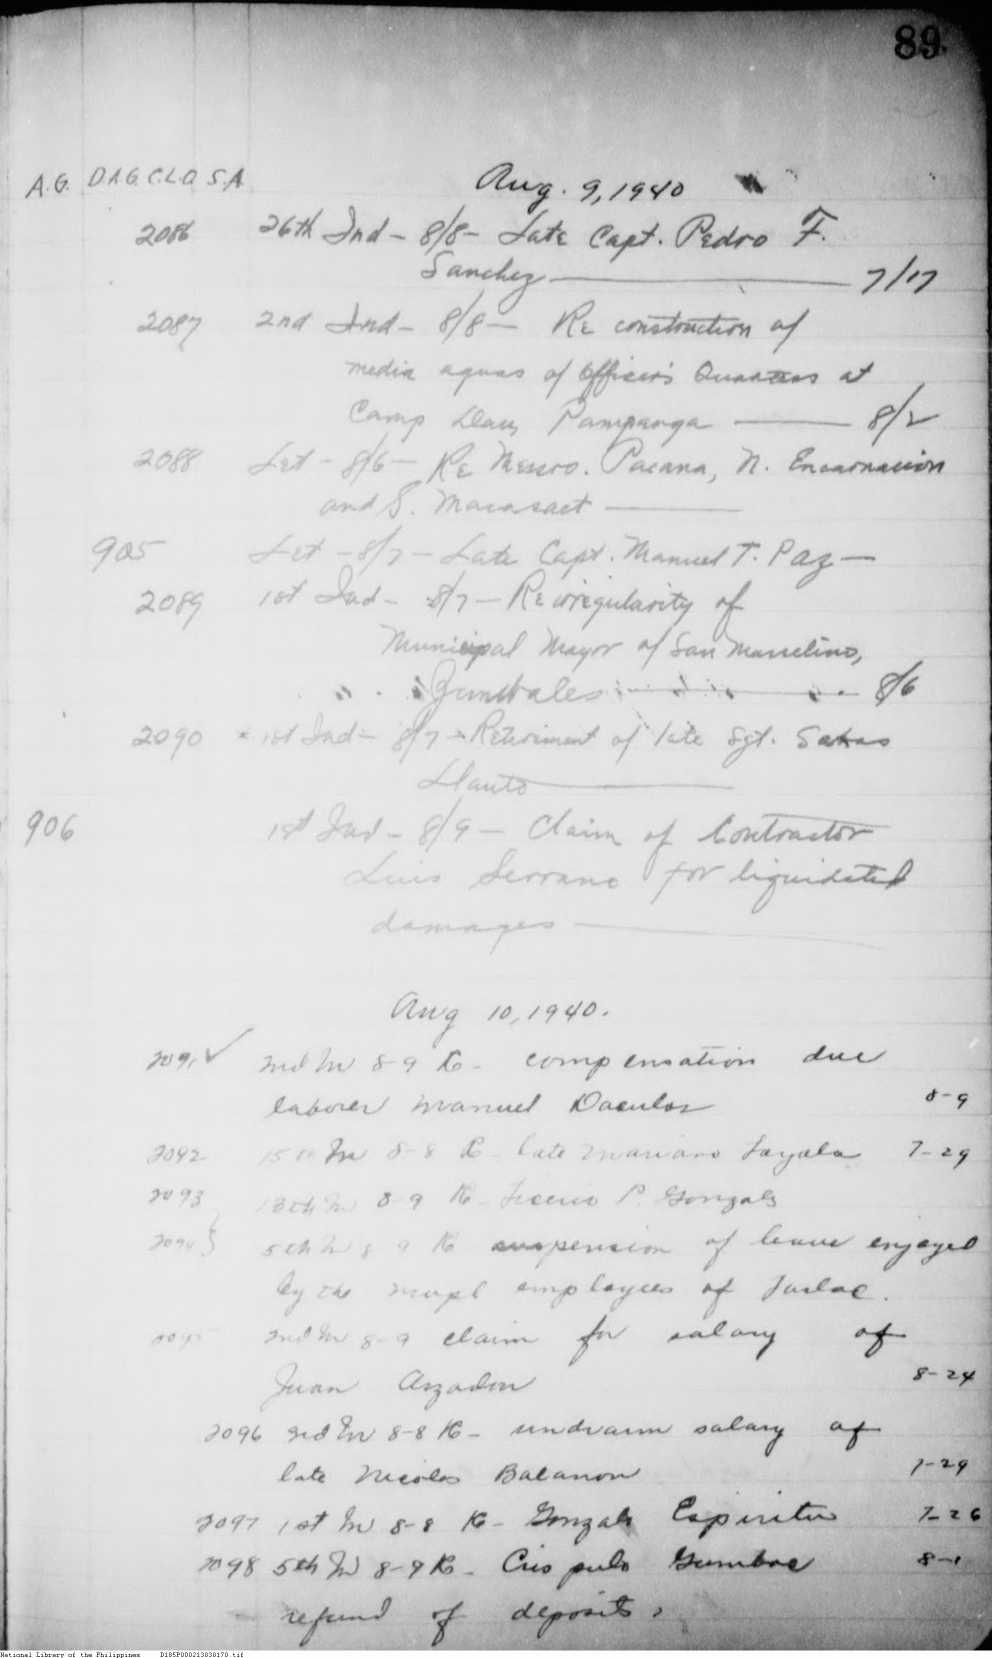 89
A.G. D.A.G. C.L.O. S.A.
Aug. 9, 1940
2086 26th Ind - 8/8 - Late Capt. Pedro F.
Sanchez 7/17
2087 2nd Ind - 8/8 - Re construction of
media aguas of Officer's Quarters at
Camp Dau, Pampanga 8/2
2088 Let - 8/6 - Re Messrs. Pacana, N. Encarnacion
and S. Macasaet
905 Let - 8/7 - Late Capt. Manuel T. Paz -
2089 1st Ind - 8/7 - Re irregularity of
Municipal Mayor of San Marcelino,
Zambales 8/6
2090 1st Ind - 8/7 - Retirement of late Sgt.
Llauto
906 1st Ind - 8/9 - Claim of Contractor
Luis Serrano for liquidated
damages
Aug 10, 1940.
2091 ✓ 2nd In 8-9 Re - compensation due
laborer Manuel 8-9
2092 15th In 8-8 Re - late Mariano Layola 7-29
2093 13th In 8-9 Re - P. Gonzales
2094 5th In 8-9 Re suspension of leave enjoyed
by the mupl employees of Tarlac.
2095 2nd In 8-9 claim for salary of
Juan Arzadon 8-24
2096 3rd In 8-8 Re - undrawn salary of
late Nicolas Balanon 7-29
2097 1st In 8-8 Re - Gonzalo Espiritu 7-26
2098 5th In 8-9 Re - Crispulo 8-1
refund of deposits,
National Library of the Philippines D185P000213030170.tif